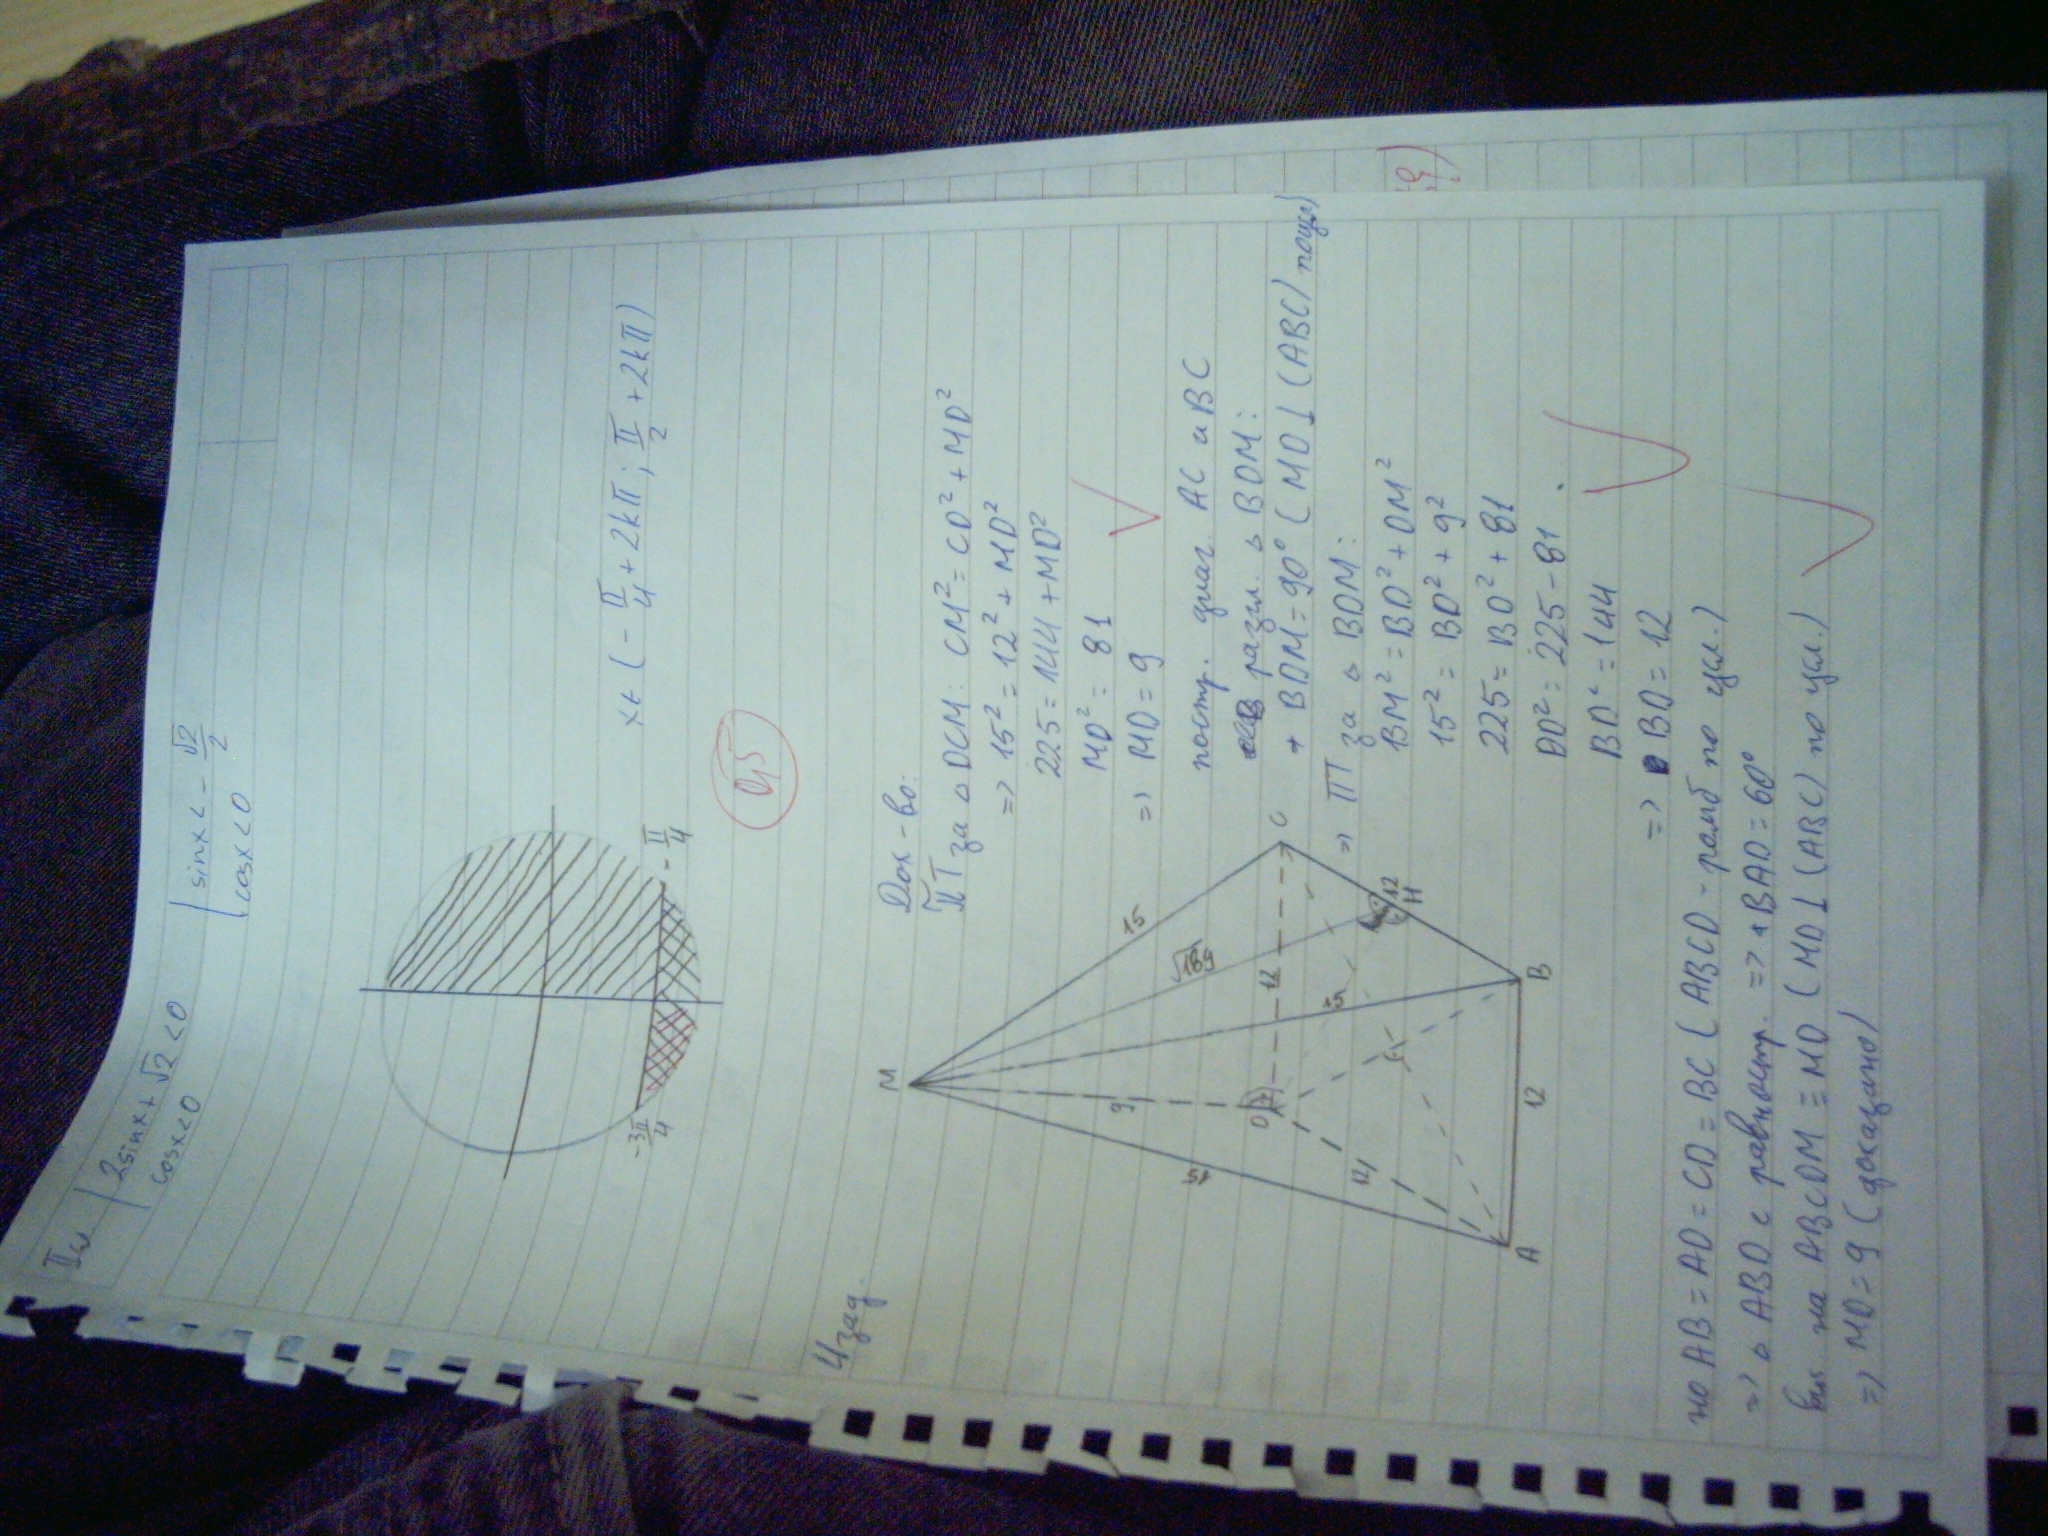 II сл. | 2sinx + √2 < 0
cosx < 0
| sinx < - √2/2
cosx < 0
- 3π/4
- π/4
x ∈ ( - π/4 + 2kπ ; π/2 + 2kπ )
0,5
4 зад.
M
15
15
√189
9
15
D
12
C
12
12
H
A
12
B
Док-во:
ПТ за △ DCM: CM² = CD² + MD²
=> 15² = 12² + MD²
225 = 144 + MD²
MD² = 81
=> MD = 9
постр. диаг. AC и BC
разгл. △ BDM:
∢ BDM = 90° ( MD ⊥ (ABC)
=> ПТ за △ BDM:
BM² = BD² + DM²
15² = BD² + 9²
225 = BD² + 81
BD² = 225 - 81
BD² = 144
=> BD = 12
но AB = AD = CD = BC ( ABCD - ромб по усл.)
=> △ ABD е равностр. => ∢ BAD = 60°
вис. на ABCDM ≡ MD ( MD ⊥ (ABC) по усл.)
=> MD = 9 (доказано)